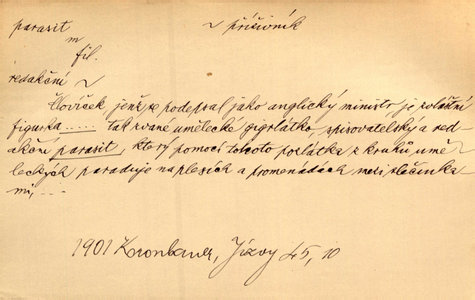 parasit ~ příživník
m
fil.
redakční ~
Človíček jenž se podepsal jako anglický ministr, je zvláštní
figurka ..... tak zvané umělecké gigrlátko, spisovatelský a red
akční parasit, který pomocí tohoto pozlátka z kruhů umě
leckých paraduje na plesích a promenádách mezi slečinka
mi, ...
1901 Kronbauer, Jizvy 45, 10